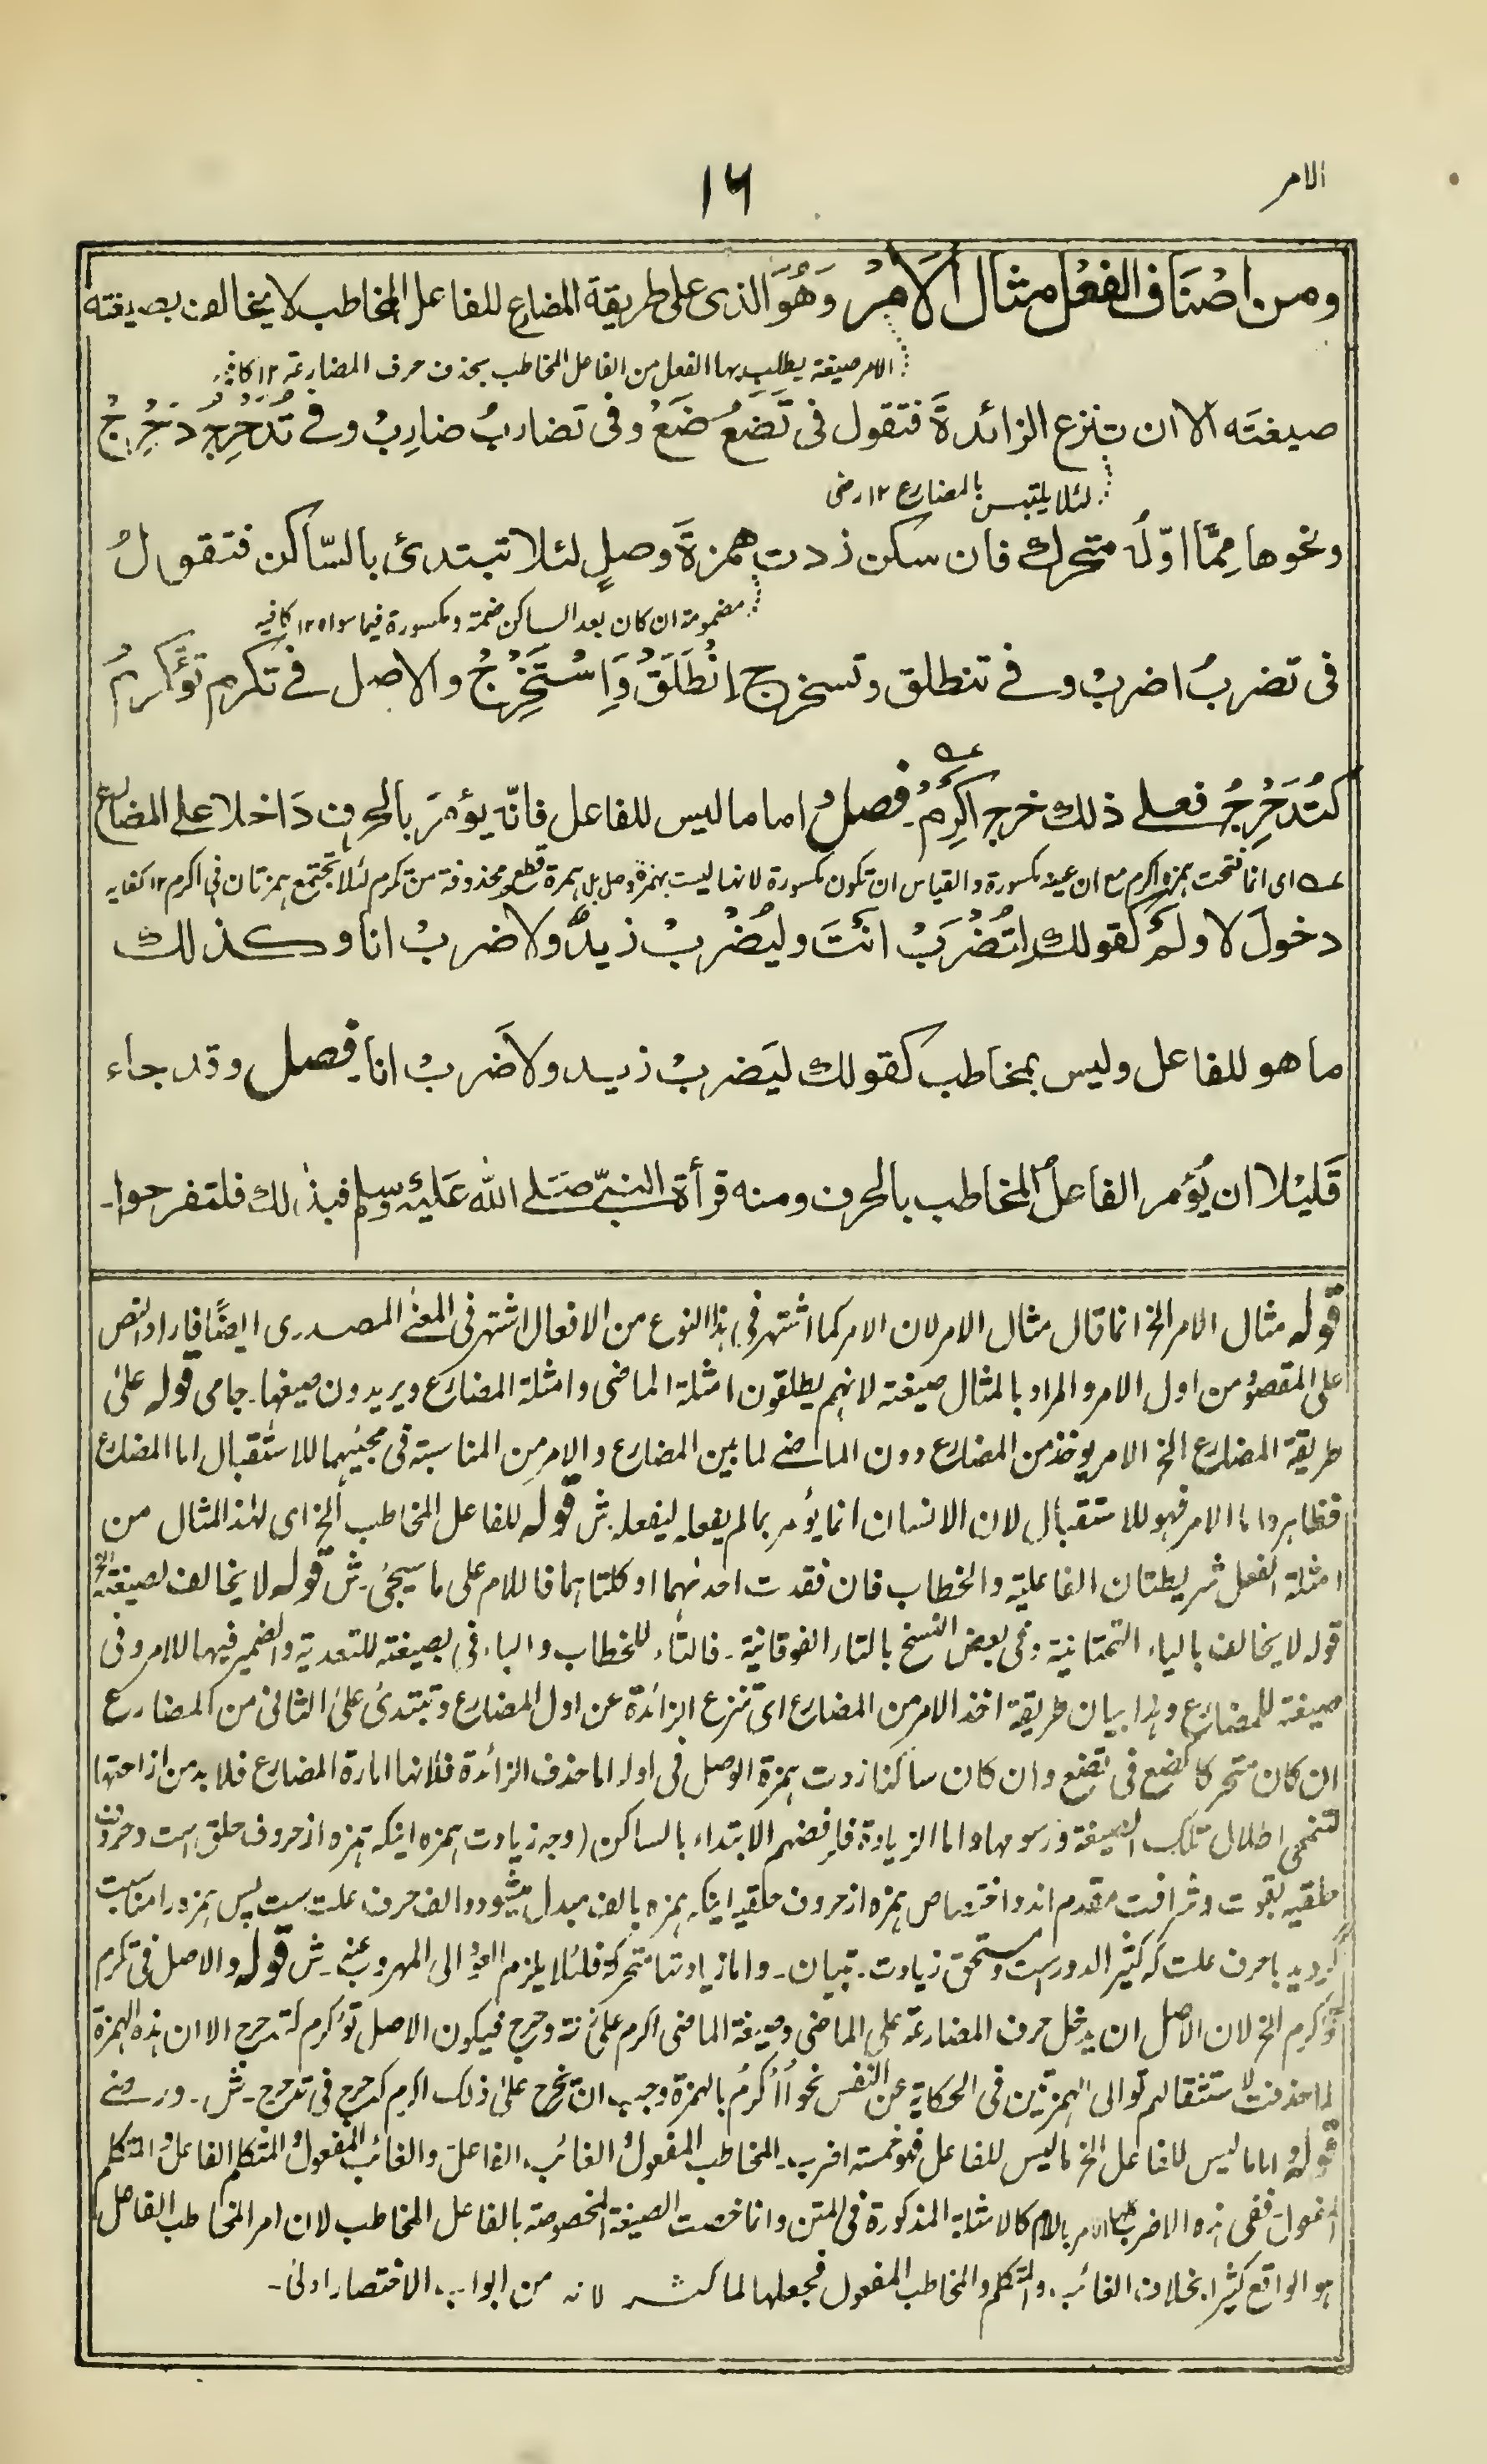 الامر
١٦
ومن اصْنَاف الفعْل مثال الاَمْرِ وَهُوَ الذى على طريقة المضارع للفاعل المخاطب لا يخالف بصيغته
الامر صيغة يطلب بها الفعل من الفاعل المخاطب بحذف حرف المضارعة ١٢ كافيه
صيغتَه الا ان تنزع الزائدةَ فتقول فى تَضَعُ ضَعْ وفى تضاربُ ضارِبْ وفے تُدَحْرِجُ دَحْرِجْ
لئلا يلتبس بالمضارع ١٢ رضى
ونحوها مِمَّا اوّلُه متحرك فان سكن زدت همزةَ وصلٍ لئلا تبتدئ بالسّاكن فتقول
مضمومة ان كان بعد الساكن ضمة ومكسورة فيما سواه ١٢ كافيه
فى تضربُ اضربْ وفے تنطلق وتسخرج اِنْطَلِقْ وَاِسْتَخْرِجْ والاصل فے تكرم تؤَكرمُ
كتُدَحْرِجُ فعلے ذلك خرج اَكْرِمْ. فصل اما ما ليس للفاعل فانّه يؤمَر بالحرف دَاخلا على المضارع
عه اى انما فتحت همزة اكرم مع ان عينه مكسورة والقياس ان تكون مكسورة لانها ليست بهمزة وصل بل همزة قطع محذوفة من تكرم لئلا تجتمع همزتان فى اكرم ١٢ كفايه
دخولَ لا ولَمْ كقولك لِتُضْرَبْ انتَ وليُضْربْ زيدٌ ولاضربْ انا وكذلك
ما هو للفاعل وليس بمخاطب كقولك ليَضربْ زيد ولاَضربْ انا. فصل وقد جاء
قَليْلا ان يُؤمر الفاعلُ المخاطب بالحرف ومنه قرأة النبىّ صَلے الله عَليْه وسلم فبذلك فلتفرحوا۔
قوله مثال الامر الخ انما قال مثال الامر لان الامر كما اشتهر فى هذا النوع من الافعال اشتهر فى المعنے المصدرى ايضًا فاراد النص
على المقصود من اول الامر والمراد بالمثال صيغة لانهم يطلقون امثلة الماضى وامثلة المضارع ويريدون صيغها۔ جامى قوله على
طريقة المضارع الخ الامر يوخذ من المضارع دون الماضے لما بين المضارع والامر من المناسبة فى مجيئهما للاستقبال اما المضارع
فظاهر واما الامر فهو للاستقبال لان الانسان انما يؤمر بما لم يفعله ليفعله۔ش قوله للفاعل المخاطب الخ اى لهذا المثال من
امثلة الفعل شريطتان الفاعلية والخطاب فان فقدت احدٰهما او كلتاهما فاللام على ما سيجئ۔ش قوله لا يخالف بصيغته الخ
قوله لا يخالف بالياء التحتانية وفى بعض النسخ بالتاء الفوقانية۔ فالتاء للخطاب والباء فى بصيغته للتعدية والضمير فيها للامر وفى
صيغته للمضارع وهذا بيان طريقة اخذ الامر من المضارع اى تنزع الزائدة عن اول المضارع وتبتدئ على الثانى من المضارع
ان كان متحركا كضع فى تضع وان كان ساكنا زدت همزة الوصل فى اوله اما حذف الزائدة فلانها امارة المضارع فلا بد من ازاحتها
لتنمحى اطلال تلك الصيغة ورسومها واما الزيادة فلرفضهم الابتداء بالساكن (وجه زيادت همزه اينكه همزه از حروف حلق است وحروف
حلقيه بقوت وشرافت مقدم اند واختصاص همزه از حروف حلقيه اينكه همزه بالف مبدل ميشود والف حرف علت ست پس همزه را مناسبت
گرديد با حرف علت كه كثير الدور است ومستحق زيادت۔ تبيان۔ واما زيادتها متحركة فلئلا يلزم العود الى المهروب عنه۔ش قوله والاصل فى تكرم
تؤكرم الخ لان الاصل ان يدخل حرف المضارعة على الماضى وصيغة الماضى اكرم على زنة دحرج فيكون الاصل تؤكرم كتدحرج الا ان هذه الهمزة
لما حذفت لاستثقالهم توالى الهمزتين فى الحكاية عن النفس نحو أأكرم بالهمزة وجب ان تخرج على ذلك اكرم كدحرج فى تدحرج۔ش۔ ورضے
قوله اما ما ليس للفاعل الخ ما ليس للفاعل فهو خمسة اضرب۔ المخاطب المفعول والغائب الفاعل والغائب المفعول والمتكلم الفاعل والمتكلم
المفعول ففى هذه الاضرب الامر باللام كالامثلة المذكورة فى المتن وانما خصت الصيغة المخصوصة بالفاعل المخاطب لان امر المخاطب الفاعل
هو الواقع كثيرا بخلاف الغائب والمتكلم والمخاطب المفعول فجعلها لما كثر لانه من ابواب الاختصار اولى۔